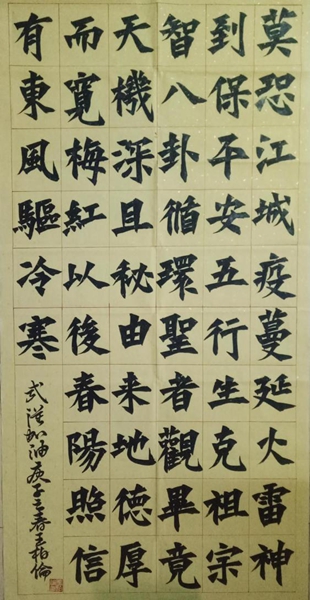 莫恐江城疫蔓延火雷神
到保平安五行生克祖宗
智八卦循環聖者觀畢竟
天機深且秘由来地德厚
而寬梅紅以後春陽照信
有東風驅冷寒
武漢加油庚子之春王柏倫